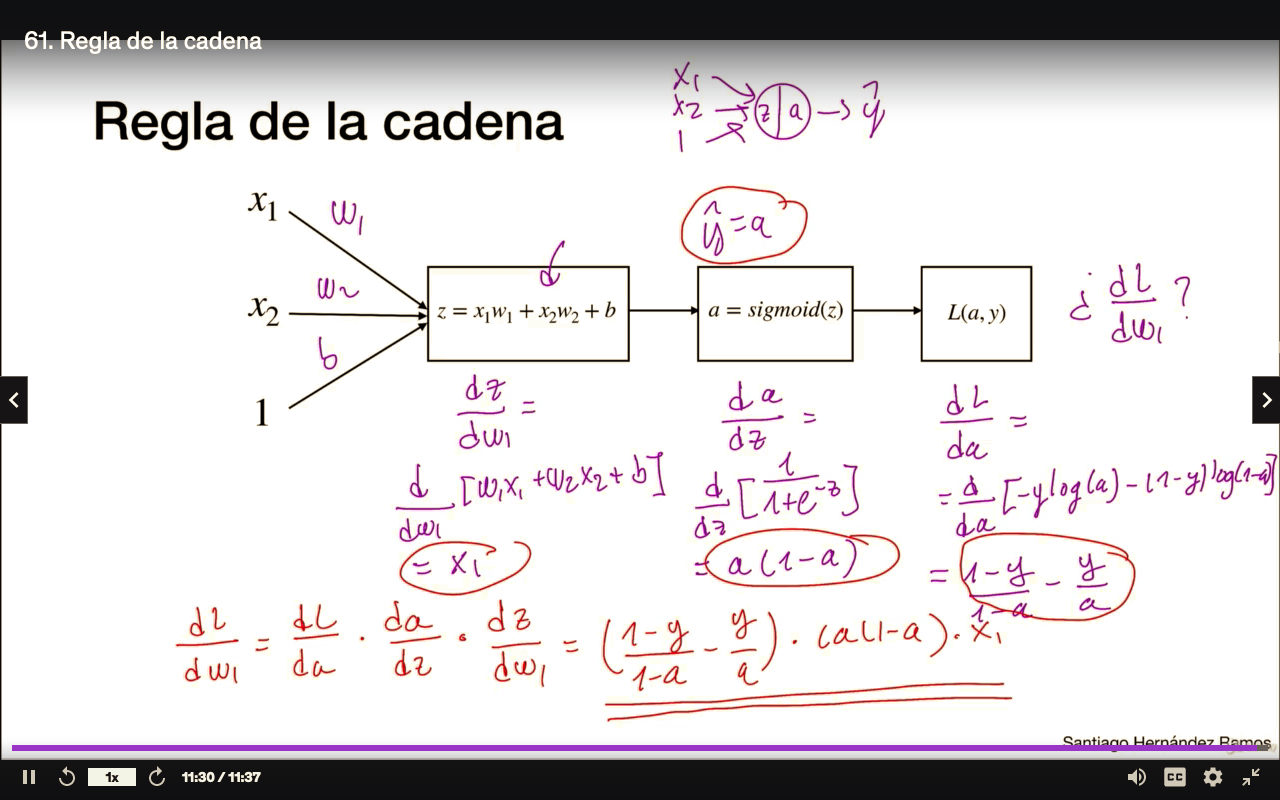 61. Regla de la cadena
Regla de la cadena
x₁
x₂
1
z | a → ŷ
ŷ = a
x₁ w₁
x₂ w₂
1 b
z = x₁w₁ + x₂w₂ + b
a = sigmoid(z)
L(a, y)
¿ dL/dw₁ ?
dz/dw₁ =
da/dz =
dL/da =
d/dw₁ [w₁x₁ + w₂x₂ + b]
d/dz [1/(1+e^-z)]
= d/da [-y log(a) - (1-y) log(1-a)]
= x₁
= a(1-a)
= (1-y)/(1-a) - y/a
dL/dw₁ = dL/da · da/dz · dz/dw₁ = ((1-y)/(1-a) - y/a) · (a(1-a) · x₁
Santiago Hernández Ramos
1x
11:30 / 11:37
CC